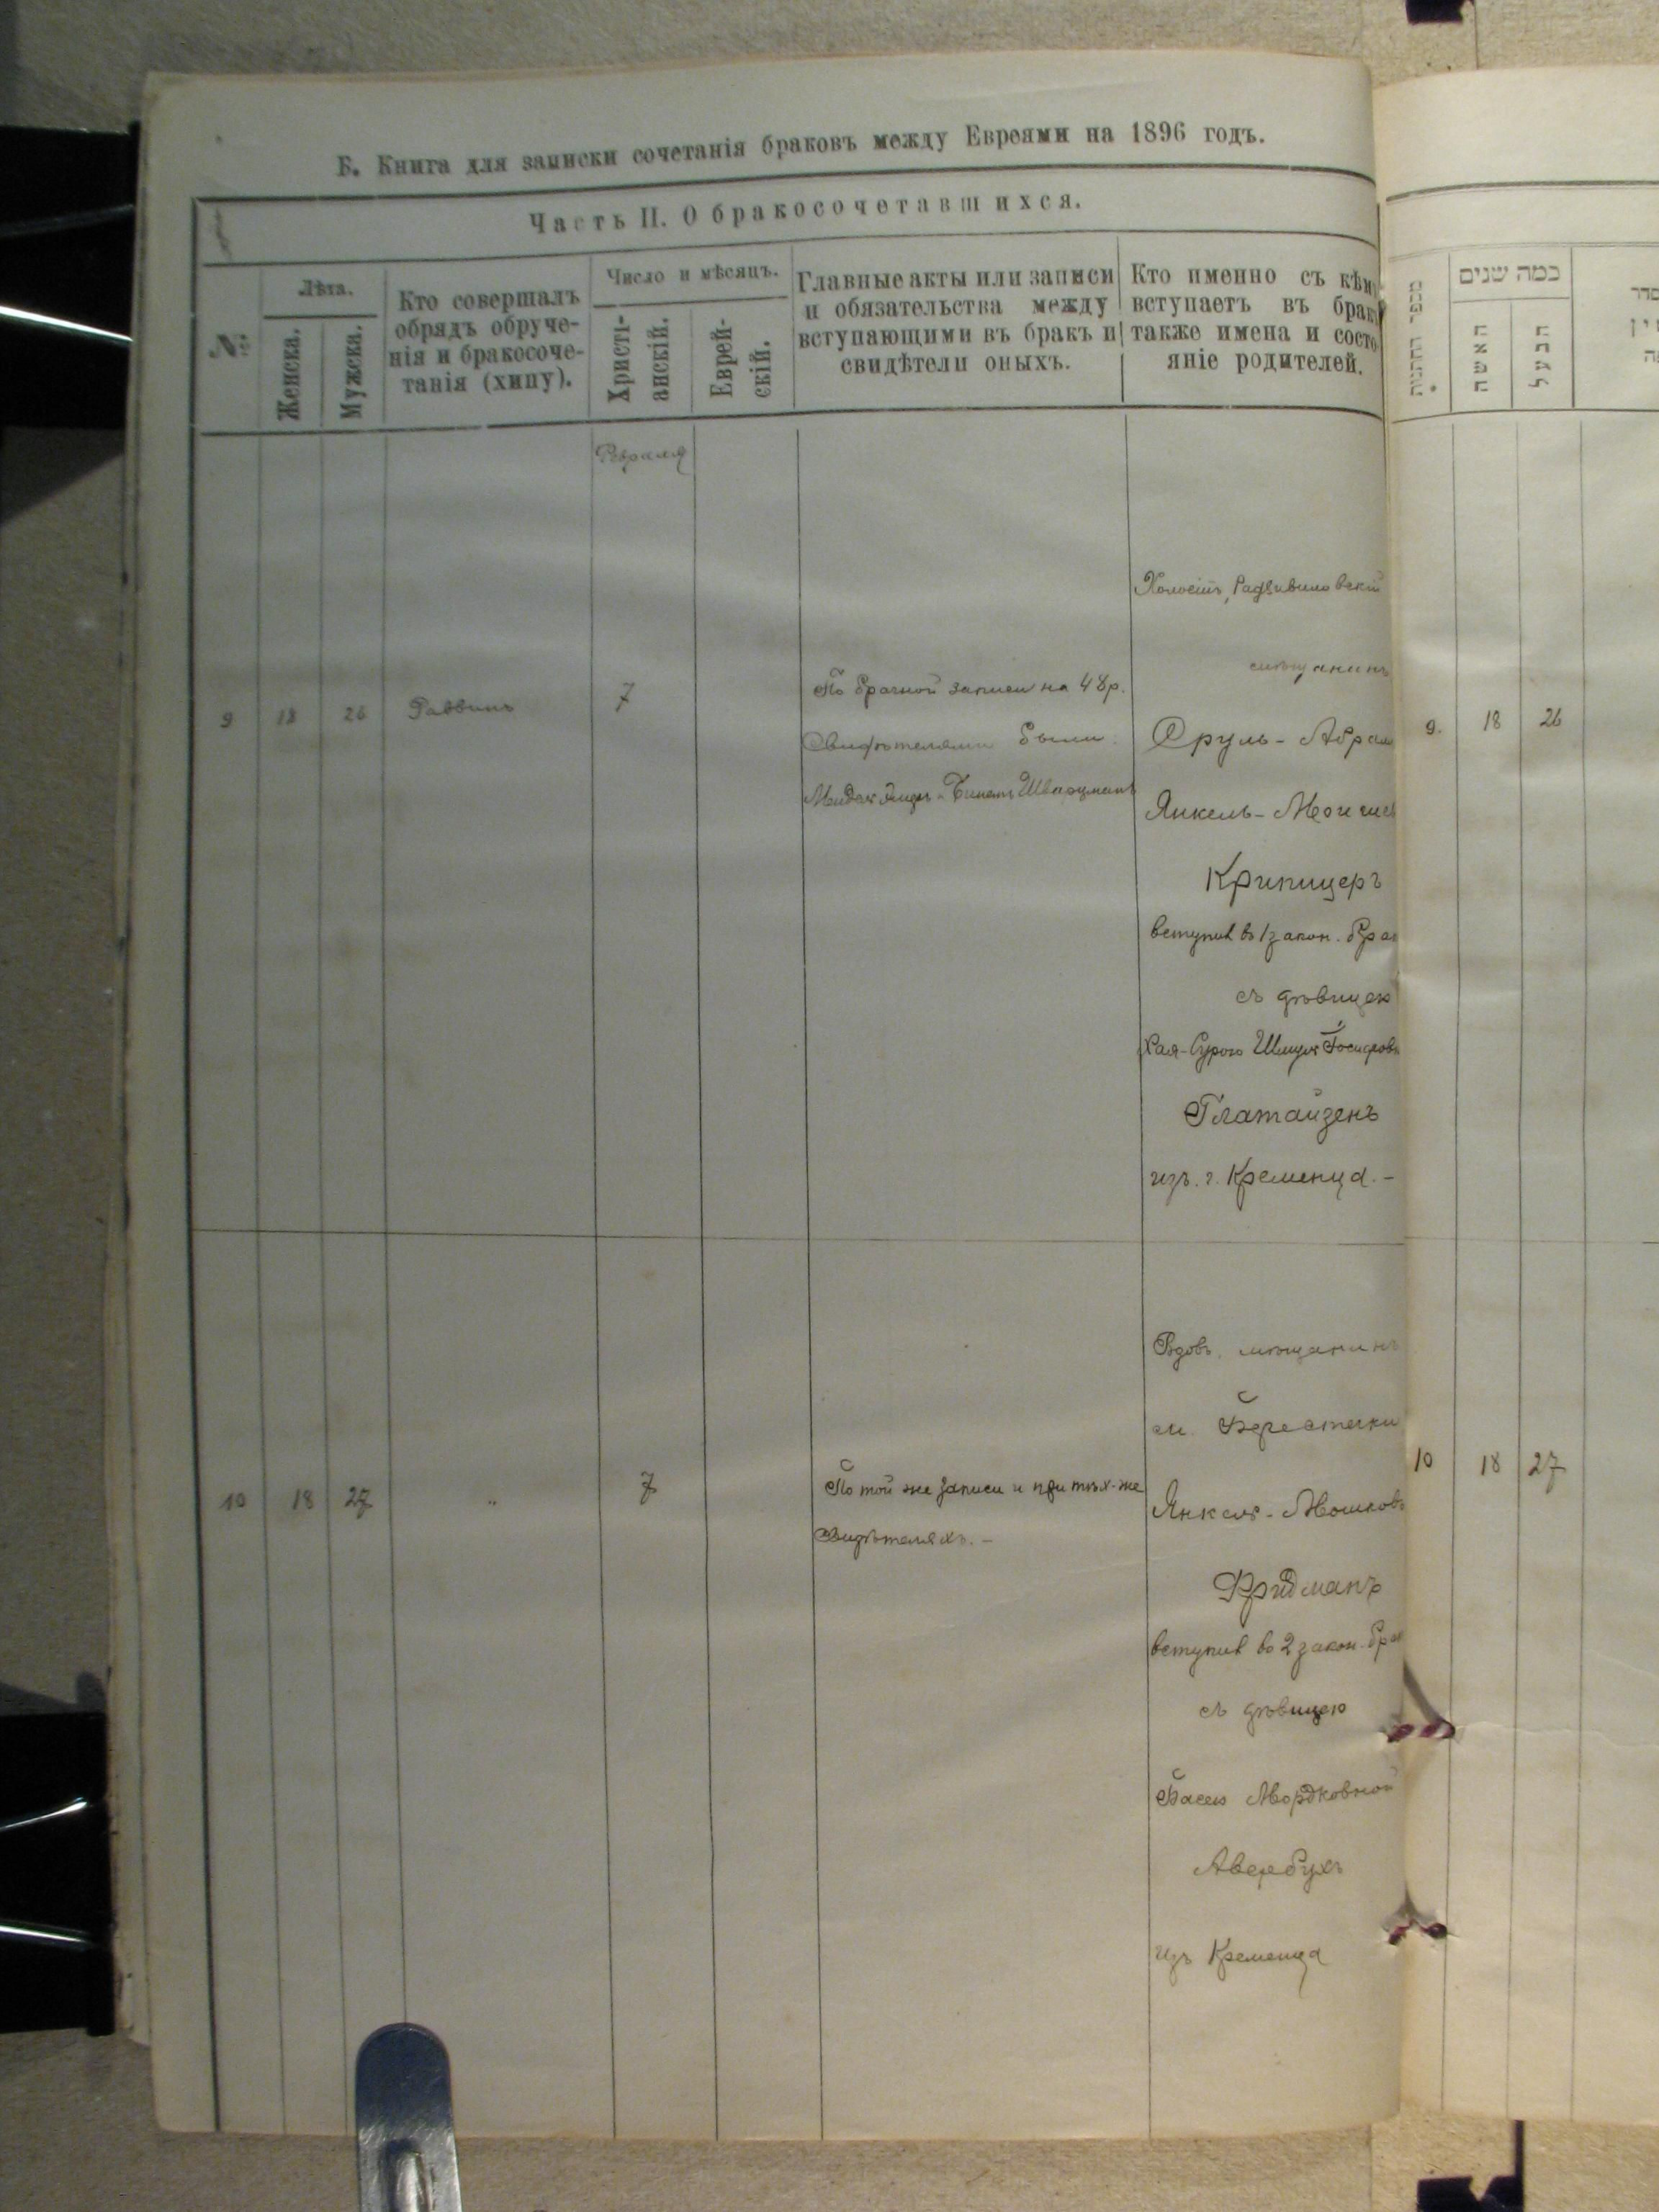 Б. Книга для записки сочетанія браковъ между Евреями на 1896 годъ.
Часть II. О бракосочетавшихся.
№
Лѣта.
Женска.
Мужска.
Кто совершалъ
обрядъ обруче-
нія и бракосоче-
танія (хипу).
Число и мѣсяцъ.
Христі-
анскій.
Еврей-
скій.
Главные акты или записи
и обязательства между
вступающими въ бракъ и
свидѣтели оныхъ.
Кто именно съ кѣмъ
вступаетъ въ бракъ
также имена и состо-
яніе родителей.
Февраля
9
18
26
Раввинъ
7
По брачной записи на 48р.
Свидѣтелями были
Шварцманъ
Холостъ, Радзивиловскій
мѣщанинъ
Сруль-Абрам
Янкель-
Крипицеръ
вступил въ 1 закон. брак
съ дѣвицею
Хая-Сурою
Глатайзенъ
изъ г. Кременца.-
10
18
27
"
7
По той же записи и при тѣх-же
Свидѣтеляхъ.-
Вдовъ, мѣщанинъ
м. Берестечки
Янкель-Мошковъ
Фридманъ
вступил во 2 закон. брак
съ дѣвицею
Басею Мордковной
Авербухъ
изъ Кременца
כמה שנים
האשה
הבעל
9.
18
26
10
18
27